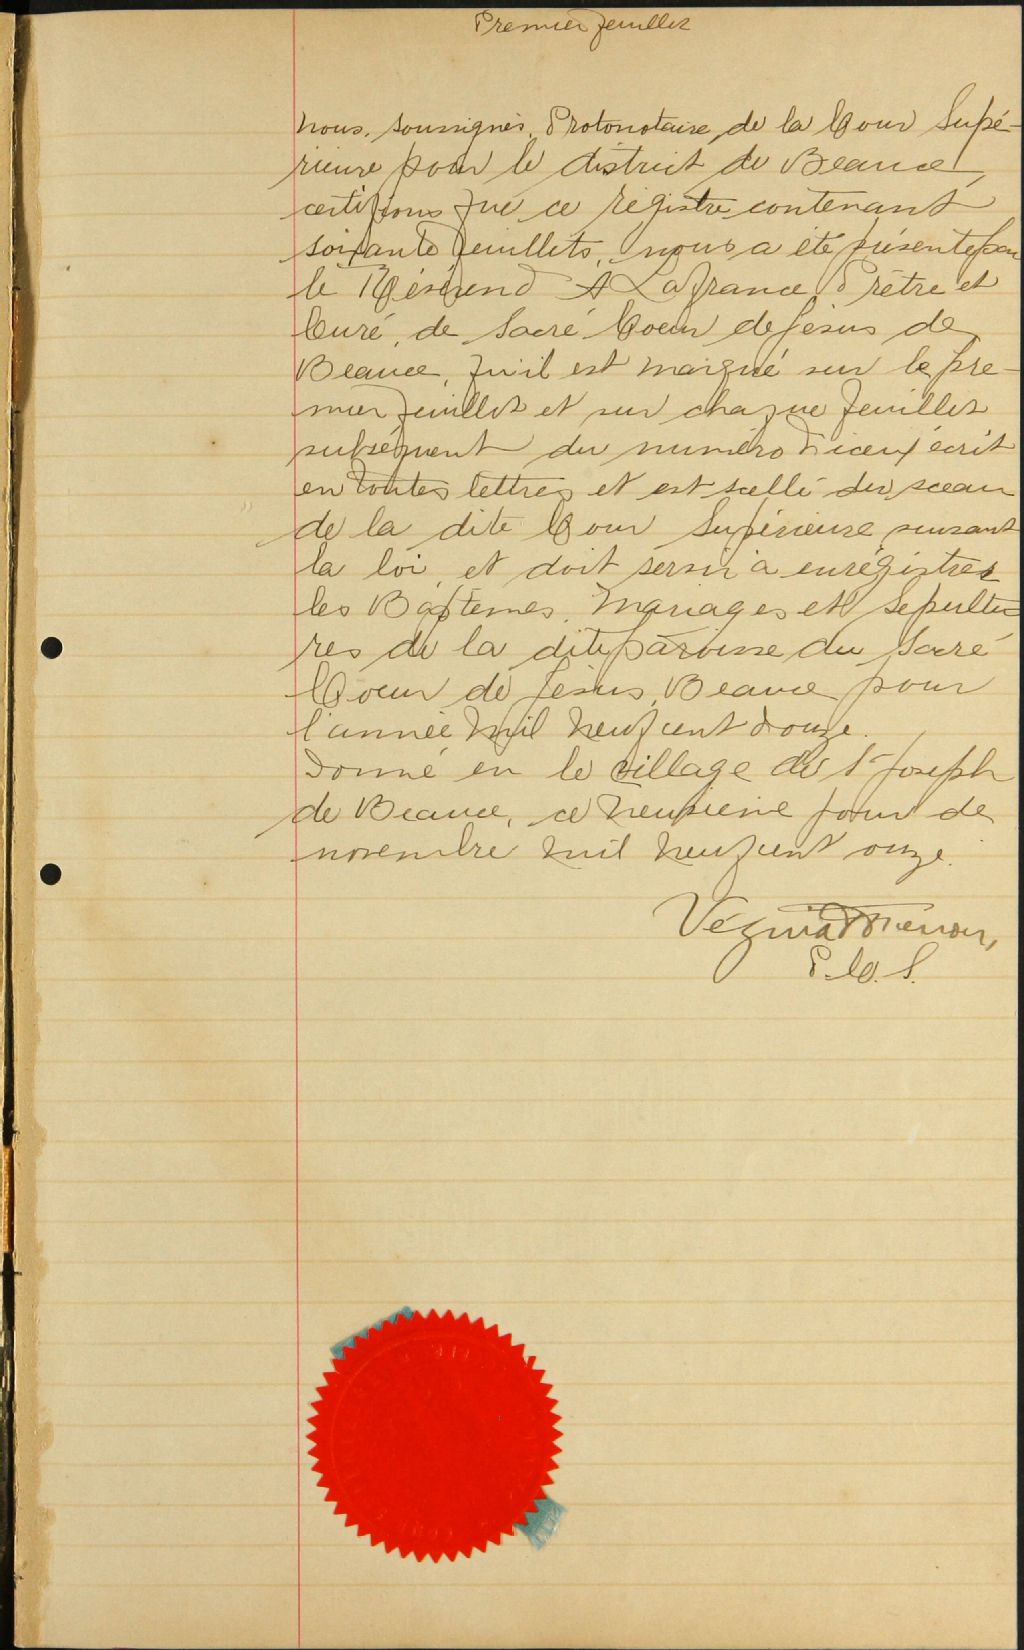 Premier feuillet
Nous, soussignés, Protonotaire de la Cour Supé-
rieure pour le district de Beauce,
certifions que ce régistre contenant
soixante feuillets, nous a été présenté par
le Révérend A Lafrance Prêtre et
Curé, de Sacré Coeur de Jésus de
Beauce, qu'il est marqué sur le pre-
mier feuillet et sur chaque feuillet
subséquent du numéro d'iceux écrit
en toutes lettres et est scellé du sceau
de la dite Cour Supérieure suivant
la loi, et doit servir à enrégistrer
les Baptemes, Mariages et Sepultu-
res de la dite paroisse du Sacré
Coeur de Jésus, Beauce pour
l'année mil neuf cent douze.
Donné en le village de St Joseph
de Beauce, ce neuvieme jour de
novembre mil neuf cent onze.
Vézina
P. C. S.